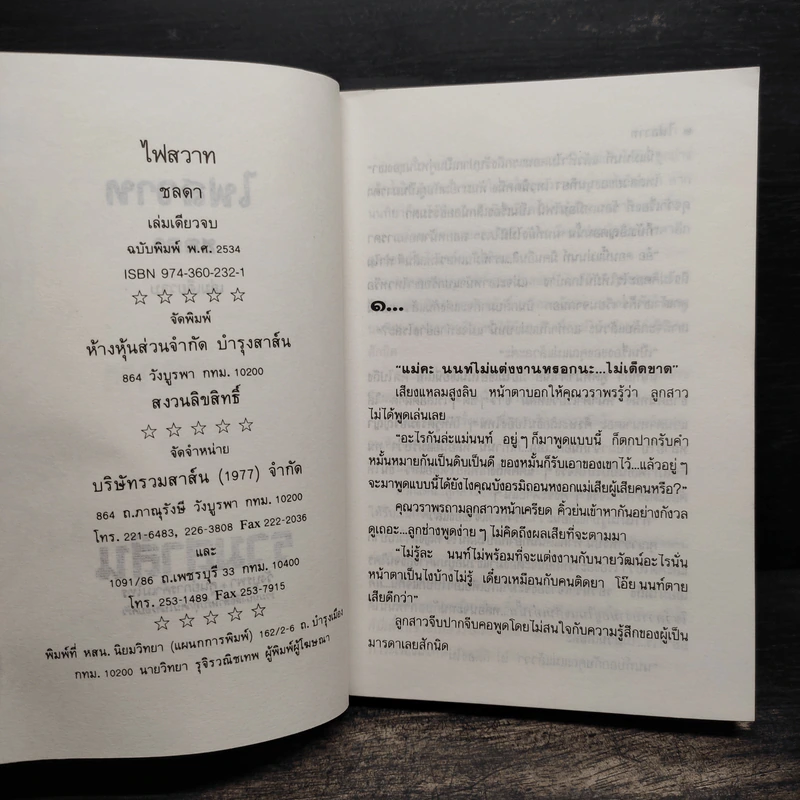 ไฟสวาท
ชลดา
เล่มเดียวจบ
ฉบับพิมพ์ พ.ศ. 2534
ISBN 974-360-232-1
☆ ☆ ☆ ☆ ☆
จัดพิมพ์
ห้างหุ้นส่วนจำกัด บำรุงสาส์น
864 วังบูรพา กทม. 10200
สงวนลิขสิทธิ์
☆ ☆ ☆ ☆ ☆
จัดจำหน่าย
บริษัทรวมสาส์น (1977) จำกัด
864 ถ.ภาณุรังษี วังบูรพา กทม. 10200
โทร. 221-6483, 226-3808 Fax 222-2036
และ
1091/86 ถ.เพชรบุรี 33 กทม. 10400
โทร. 253-1489 Fax 253-7915
☆ ☆ ☆ ☆ ☆
พิมพ์ที่ หสน. นิยมวิทยา (แผนกการพิมพ์) 162/2-6 ถ. บำรุงเมือง
กทม. 10200 นายวิทยา รุจิรวณิชเทพ ผู้พิมพ์ผู้โฆษณา
๑...
"แม่คะ นนท์ไม่แต่งงานหรอกนะ...ไม่เด็ดขาด"
เสียงแหลมสูงลิบ หน้าตาบอกให้คุณวราพรรู้ว่า ลูกสาว
ไม่ได้พูดเล่นเลย
"อะไรกันล่ะแม่นนท์ อยู่ๆ ก็มาพูดแบบนี้ ก็ตกปากรับคำ
หมั้นหมายกันเป็นดิบเป็นดี ของหมั้นก็รับเอาของเขาไว้...แล้วอยู่ๆ
จะมาพูดแบบนี้ได้ยังไงคุณบังอรมิถอนหงอกแม่เสียผู้เสียคนหรือ?"
คุณวราพรถามลูกสาวหน้าเครียด คิ้วย่นเข้าหากันอย่างกังวล
ดูเถอะ...ลูกช่างพูดง่ายๆ ไม่คิดถึงผลเสียที่จะตามมา
"ไม่รู้ละ นนท์ไม่พร้อมที่จะแต่งงานกับนายวัฒน์อะไรนั่น
หน้าตาเป็นไงบ้างไม่รู้ เดี๋ยวเหมือนกับคนติดยา โอ๊ย นนท์ตาย
เสียดีกว่า"
ลูกสาวจีบปากจีบคอพูดโดยไม่สนใจกับความรู้สึกของผู้เป็น
มารดาเลยสักนิด